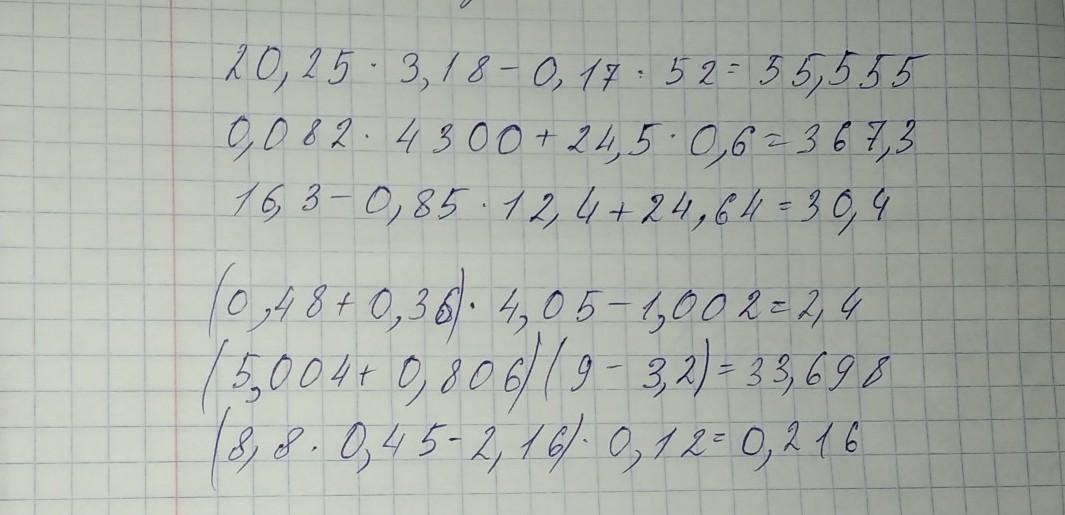 20,25 · 3,18 - 0,17 · 52 = 55,555
0,082 · 4300 + 24,5 · 0,6 = 367,3
16,3 - 0,85 · 12,4 + 24,64 = 30,4
(0,48 + 0,36) · 4,05 - 1,002 = 2,4
(5,004 + 0,806)(9 - 3,2) = 33,698
(8,8 · 0,45 - 2,16) · 0,12 = 0,216